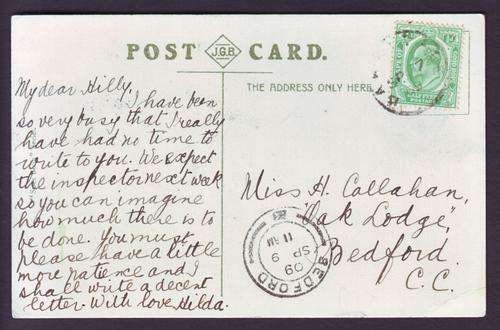 POST J.G.B. CARD.
THE ADDRESS ONLY HERE.
My dear Hilly,
I have been
so very busy that I really
have had no time to
write to you. We expect
the inspector next week
so you can imagine
how much there is to
be done. You must
please have a little
more patience and I
shall write a decent
letter. With love, Hilda.
Miss H. Callahan,
"Oak Lodge",
Bedford.
C.C.
BEDFORD
11 AM
9
SP
09